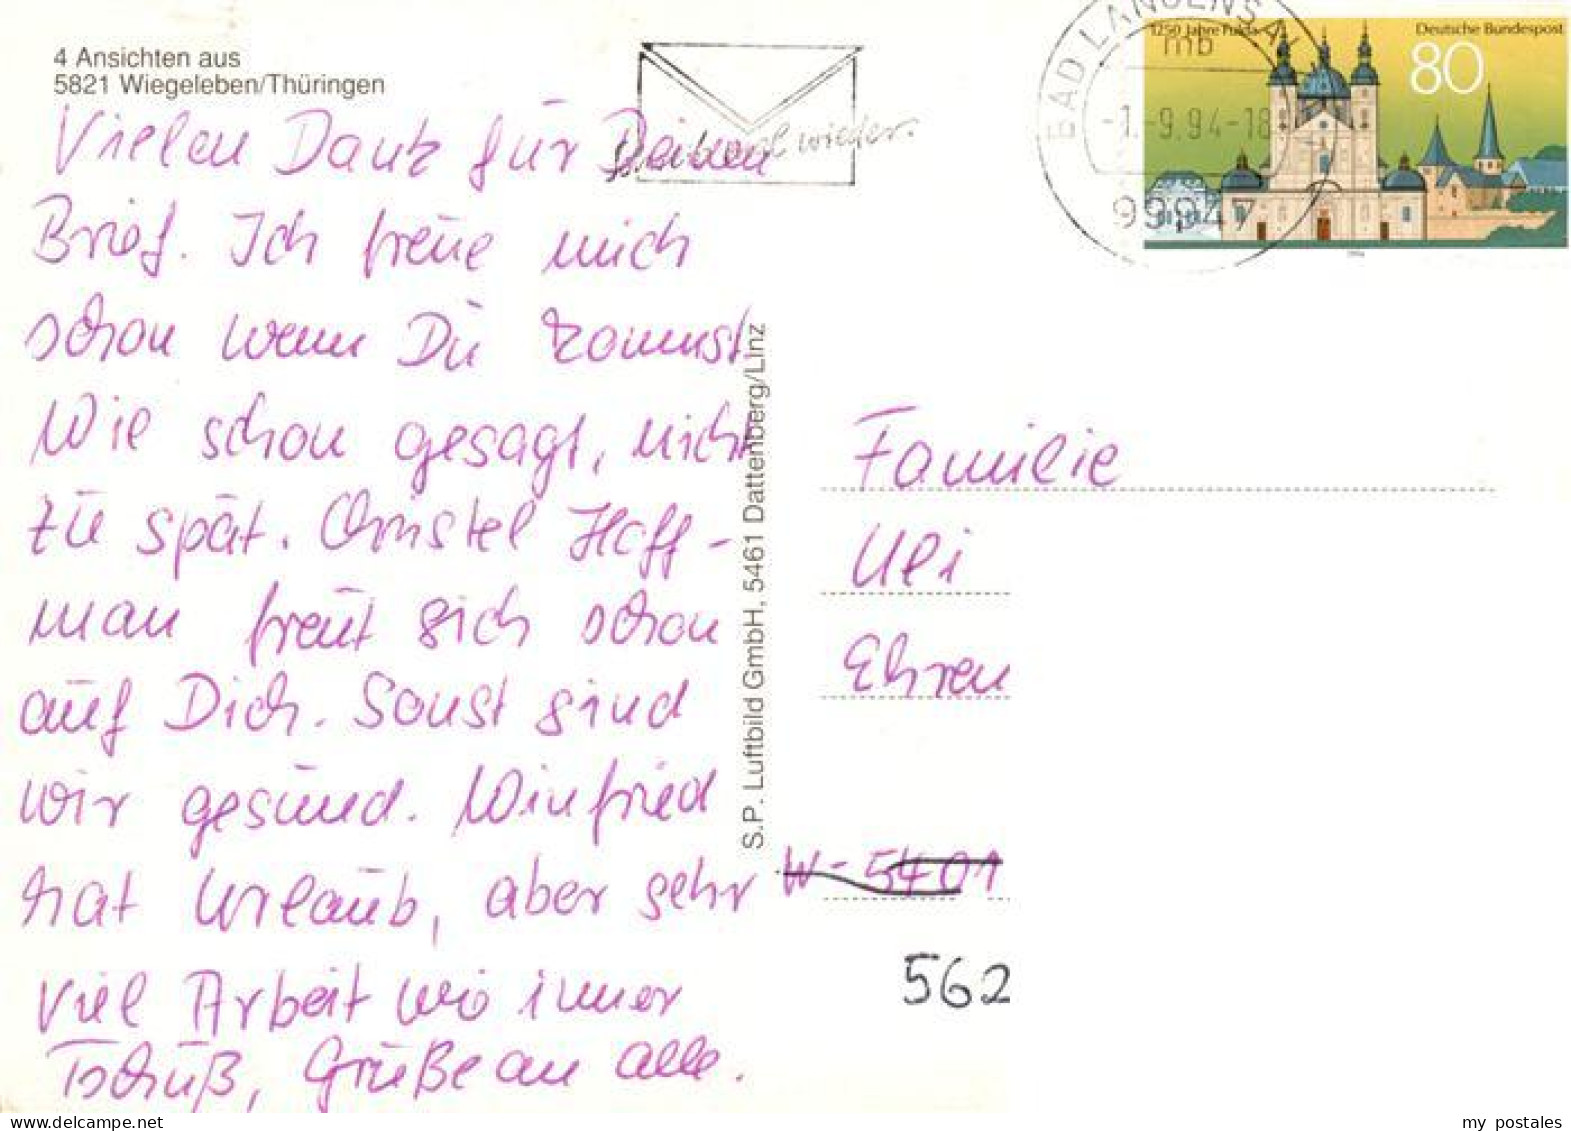 4 Ansichten aus
5821 Wiegeleben/Thüringen
Vielen Dank für Deinen
Brief. Ich freue mich
schon wenn Du kommst.
Wie schon gesagt, nicht
zu spät. Christel Hoff-
man freut sich schon
auf Dich. Sonst sind
wir gesund. Winfried
hat Urlaub, aber sehr
viel Arbeit wie immer
Tschüß, Grüße an alle.
mal wieder.
S.P. Luftbild GmbH, 5461 Dattenberg/Linz
BAD LANGENSAL
mb
-1.-9.94-18
99947
1250 Jahre Fulda
Deutsche Bundespost
80
1994
Familie
Uli
Ehren
W-5401
562
my postales